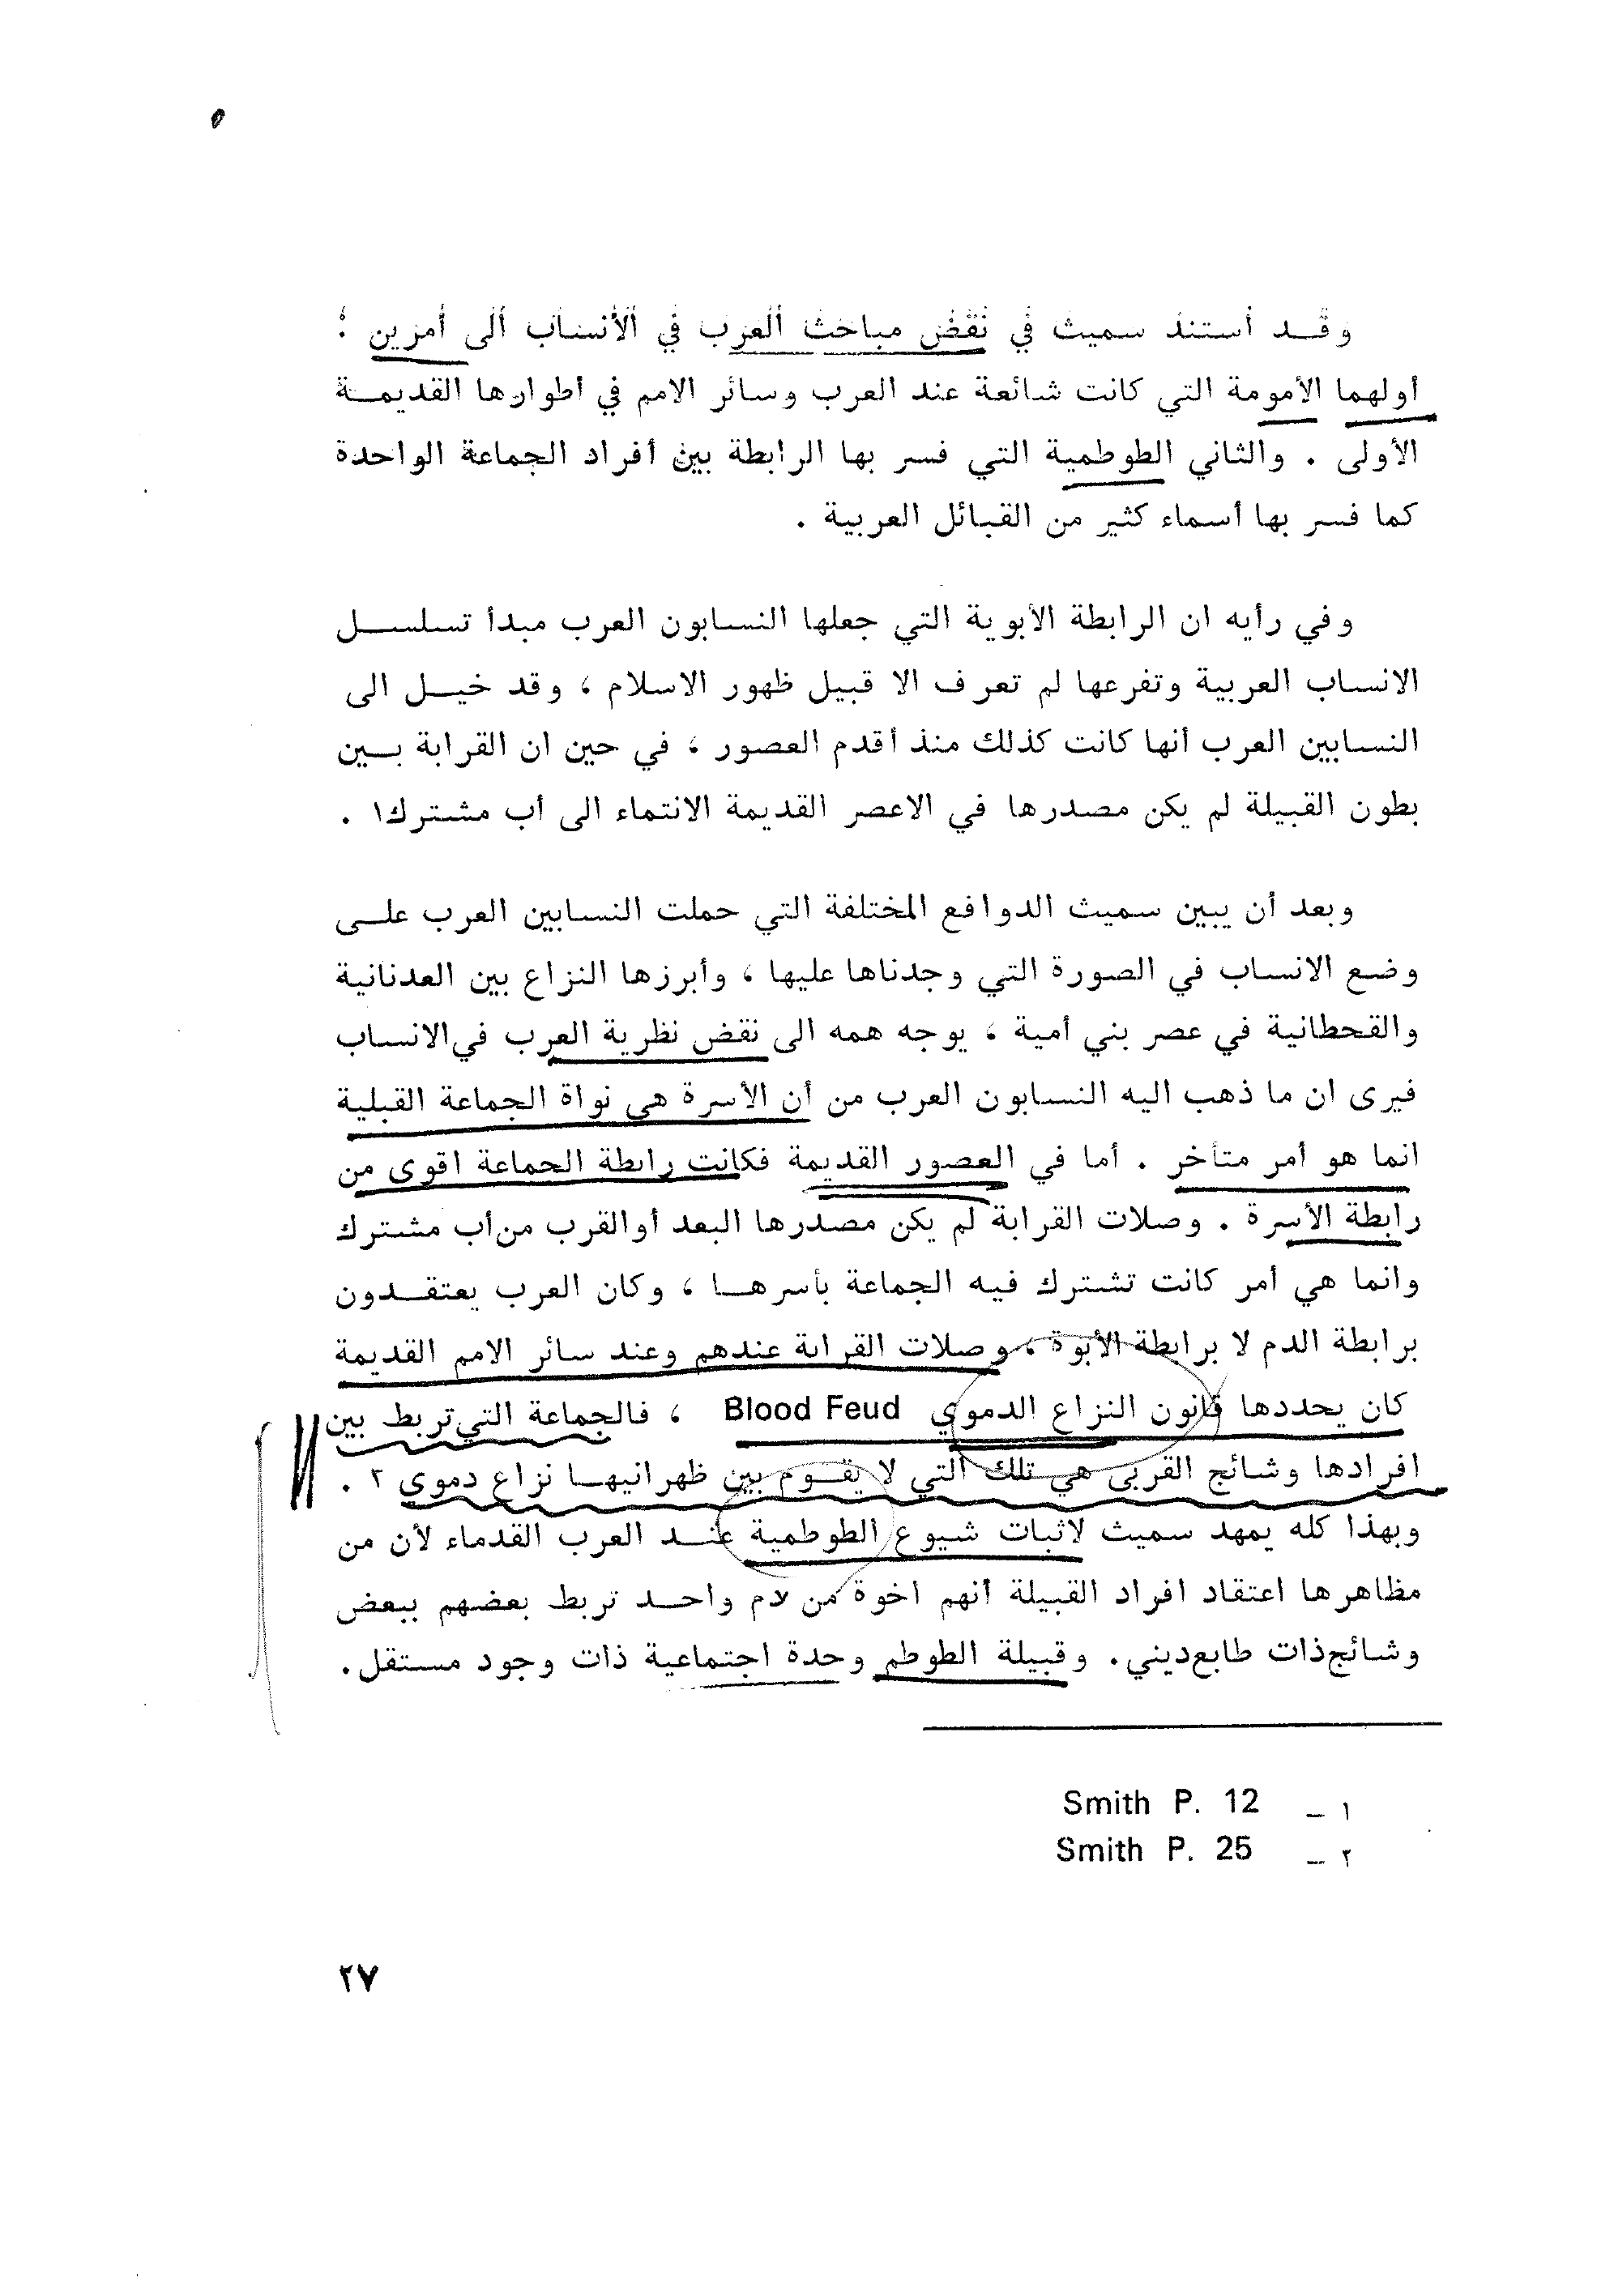 وقد أستند سميث في نقض مباحث العرب في الأنساب ألى أمرين :
أولهما الأمومة التي كانت شائعة عند العرب وسائر الامم في أطوارها القديمة
الأولى . والثاني الطوطمية التي فسر بها الرابطة بين أفراد الجماعة الواحدة
كما فسر بها أسماء كثير من القبائل العربية .
وفي رأيه ان الرابطة الأبوية التي جعلها النسابون العرب مبدأ تسلسل
الانساب العربية وتفرعها لم تعرف الا قبيل ظهور الاسلام ، وقد خيل الى
النسابين العرب أنها كانت كذلك منذ أقدم العصور ، في حين ان القرابة بين
بطون القبيلة لم يكن مصدرها في الاعصر القديمة الانتماء الى أب مشترك١ .
وبعد أن يبين سميث الدوافع المختلفة التي حملت النسابين العرب على
وضع الانساب في الصورة التي وجدناها عليها ، وأبرزها النزاع بين العدنانية
والقحطانية في عصر بني أمية ، يوجه همه الى نقض نظرية العرب في الانساب
فيرى ان ما ذهب اليه النسابون العرب من أن الأسرة هي نواة الجماعة القبلية
انما هو أمر متأخر . أما في العصور القديمة فكانت رابطة الجماعة اقوى من
رابطة الأسرة . وصلات القرابة لم يكن مصدرها البعد أو القرب من أب مشترك
وانما هي أمر كانت تشترك فيه الجماعة بأسرها ، وكان العرب يعتقدون
برابطة الدم لا برابطة الأبوة ، وصلات القرابة عندهم وعند سائر الامم القديمة
كان يحددها قانون النزاع الدموي Blood Feud ، فالجماعة التي تربط بين
افرادها وشائج القربى هي تلك التي لا يقوم بين ظهرانيها نزاع دموي ٢ .
وبهذا كله يمهد سميث لاثبات شيوع الطوطمية عند العرب القدماء لأن من
مظاهرها اعتقاد افراد القبيلة أنهم اخوة من دم واحد تربط بعضهم ببعض
وشائج ذات طابع ديني . وقبيلة الطوطم وحدة اجتماعية ذات وجود مستقل .
١ – Smith P. 12
٢ – Smith P. 25
٢٧